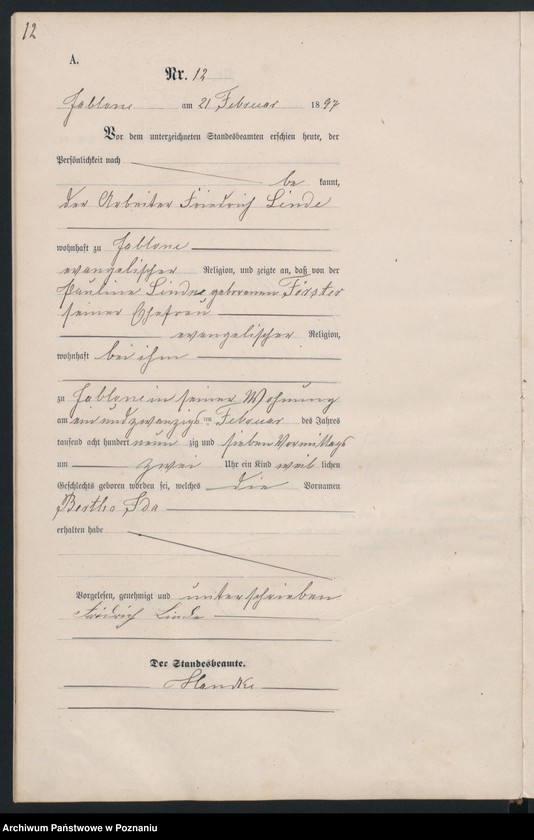 12
A.
Nr. 12
Jablone am 21 Februar 1897
Vor dem unterzeichneten Standesbeamten erschien heute, der
Persönlichkeit nach
be kannt,
der Arbeiter Friedrich Linde
wohnhaft zu Jablone
evangelischer Religion, und zeigte an, daß von der
Pauline Linde geborenen Förster
seiner Ehefrau
evangelischer Religion,
wohnhaft bei ihm
zu Jablone in seiner Wohnung
am ein und zwanzigsten Februar des Jahres
tausend acht hundert neun zig und sieben Vormittags
um zwei Uhr ein Kind weib lichen
Geschlechts geboren worden sei, welches die Vornamen
Bertha Ida
erhalten habe
Vorgelesen, genehmigt und unterschrieben
Friedrich Linde
Der Standesbeamte.
Archiwum Państwowe w Poznaniu